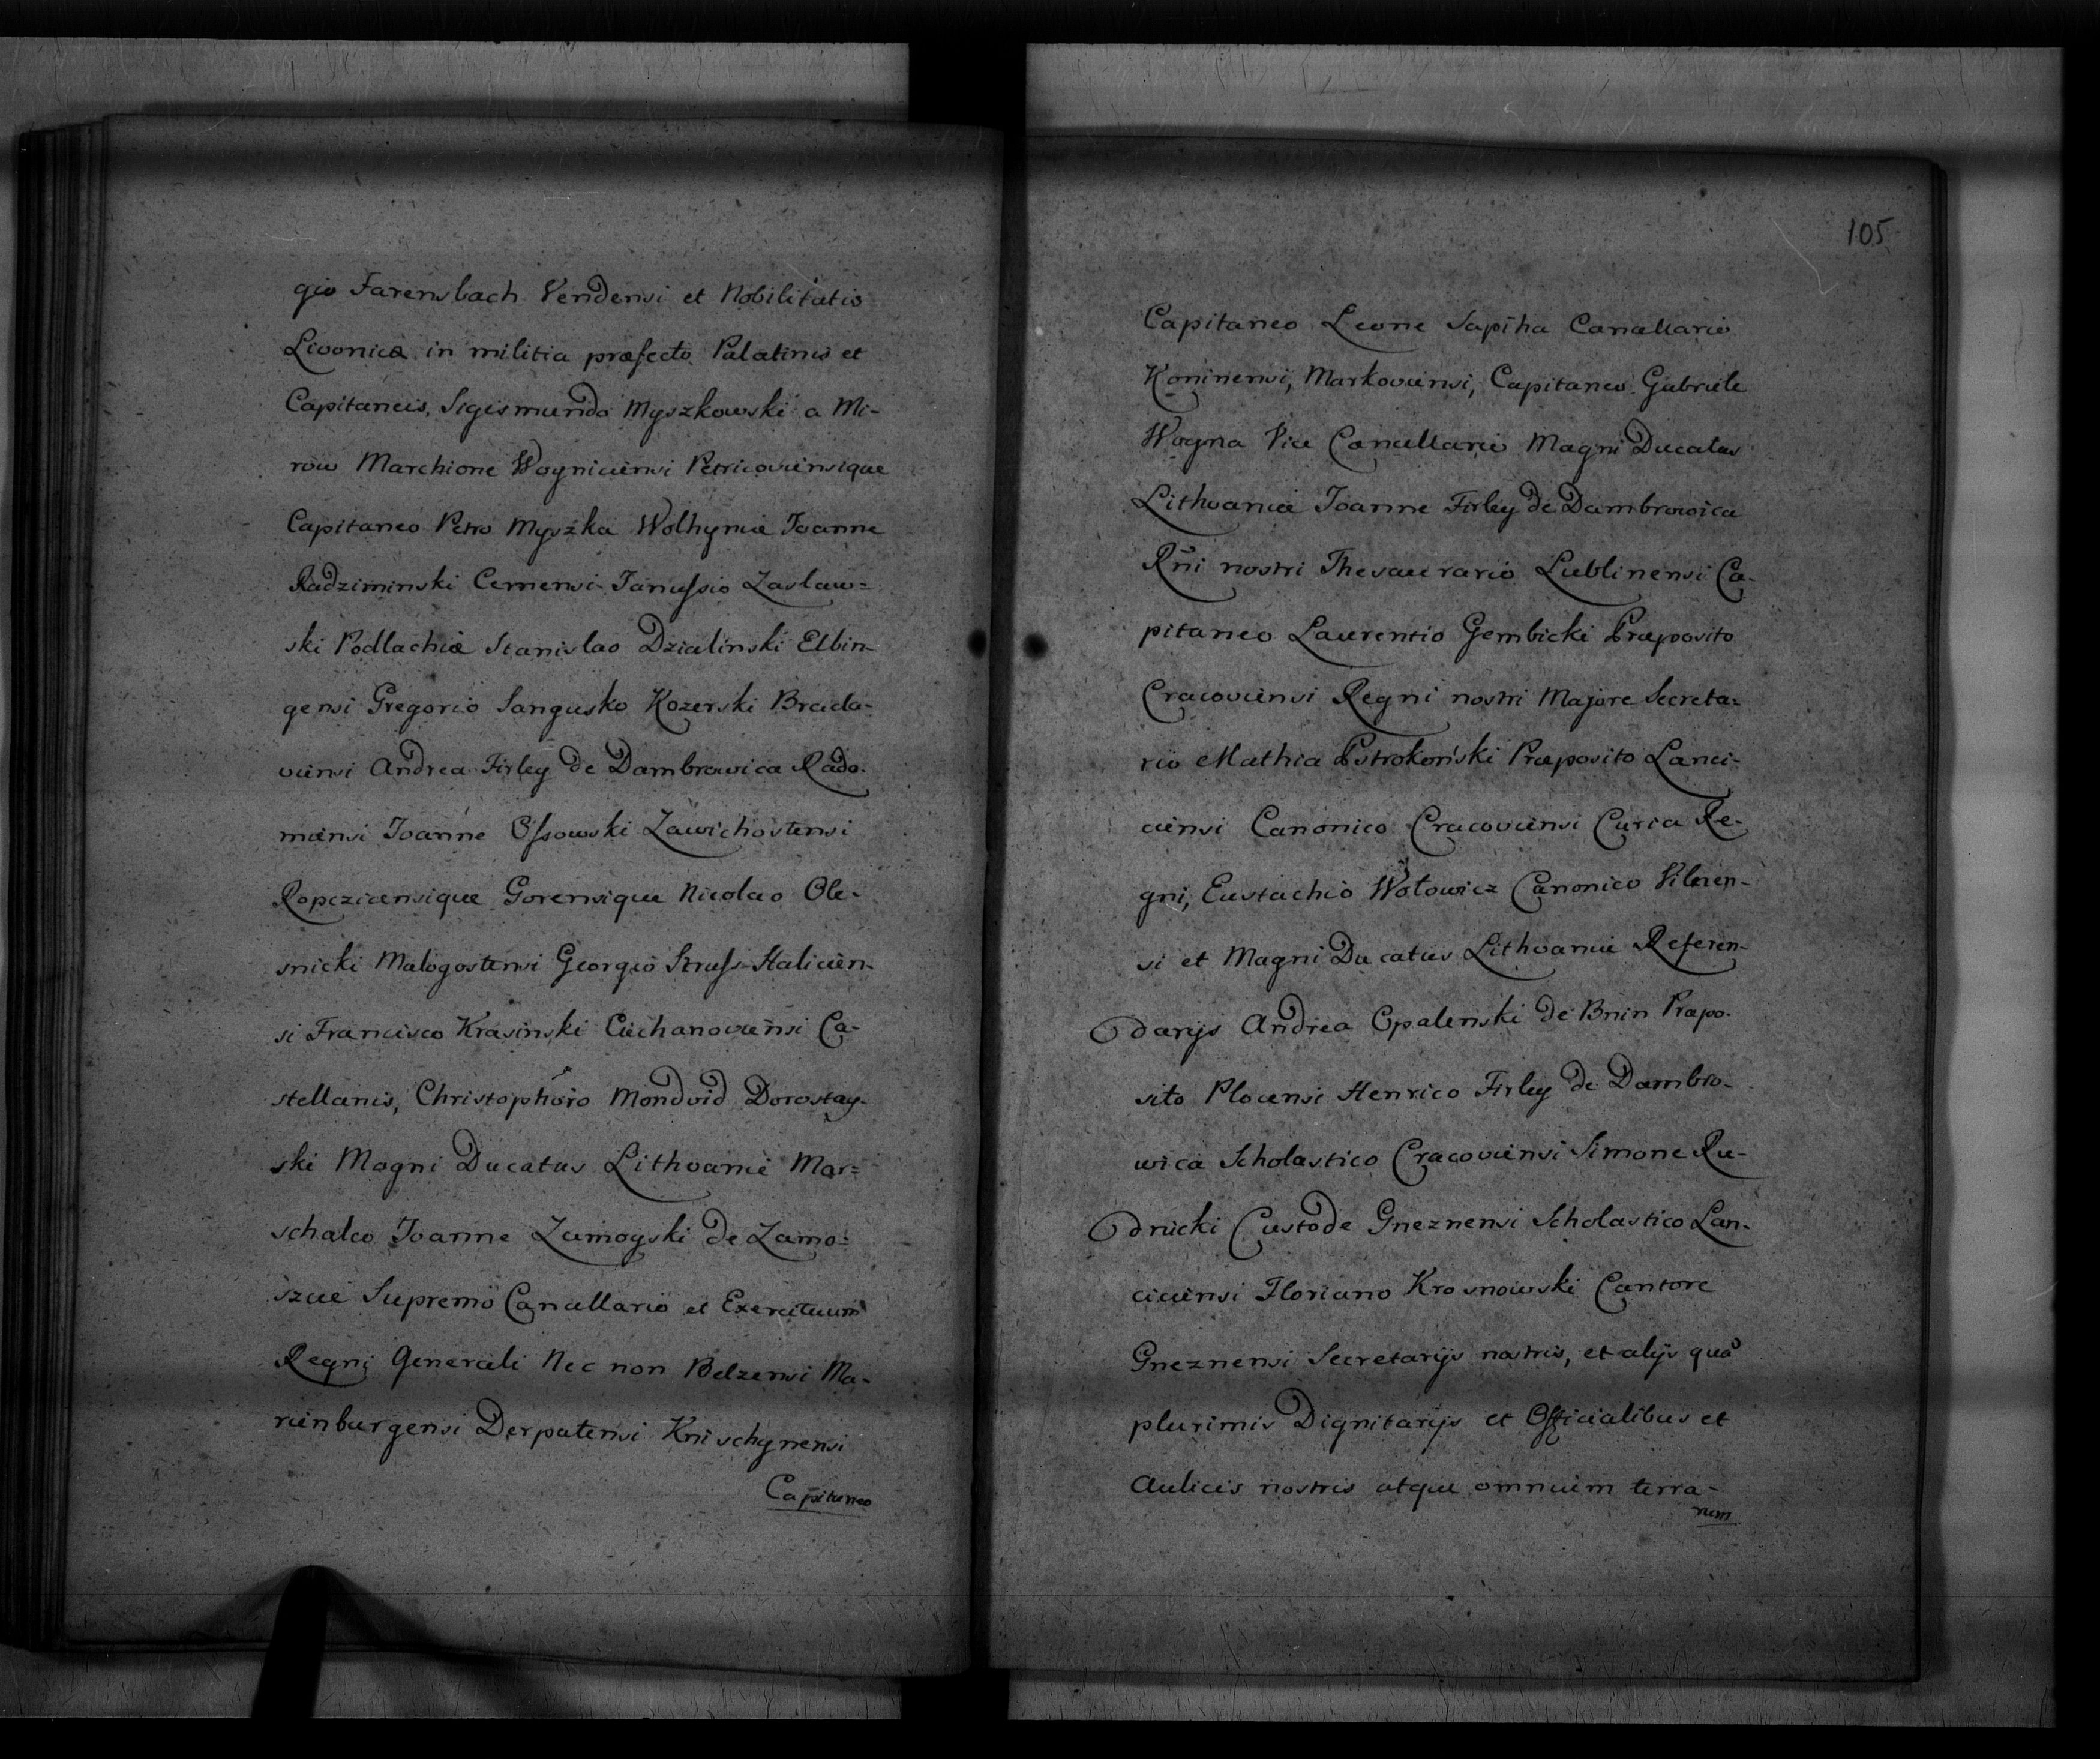 gio Farensbach Vendensi et Nobilitatis
Livonicæ in militia præfecto Palatinis et
Capitaneis, Sigismundo Myszkowski a Mi-
row Marchione Woyniciensi Petricoviensique
Capitaneo Petro Myszka Wolhyniæ Joanne
Radziminski Cernensi Janussio Zaslaw=
ski Podlachiæ Stanislao Dzialinski Elbin-
gensi Gregorio Sangusko Kozerski Bracla-
viensi Andrea Firley de Dambrowica Rado-
miensi Joanne Ossowski Zawichostensi
Ropcziensique Gorensique Nicolao Ole-
snicki Malogostensi Georgio Struss Halicien-
si Francisco Krasinski Ciechanoviensi Ca-
stellanis, Christophoro Mondvid Dorostay-
ski Magni Ducatus Lithvaniæ Mar=
schalco Joanne Zamoyski de Zamo=
szcie Supremo Cancellario et Exercituum
Regni Generali Nec non Belzensi Ma-
rienburgensi Derpatensi Knischynensi
Capitaneo
105
Capitaneo Leone Sapiha Cancellario
Koninensi, Markoviensi, Capitaneo Gabriele
Woyna Vice Cancellario Magni Ducatus
Lithvaniæ Joanne Firley de Dambrowica
Rñi nostri Thesaurario Lublinensi Ca-
pitaneo Laurentio Gembicki Præposito
Cracoviensi Regni nostri Majore Secreta=
rio Mathia Pstrokoński Præposito Lanci-
ciensi Canonico Cracoviensi Curiæ Re-
gni, Eustachio Wołowicz Canonico Vilnen-
si et Magni Ducatus Lithvaniæ Referen-
darijs Andrea Opalenski de Bnin Præpo-
sito Plocensi Henrico Firley de Dambro-
wica Scholastico Cracoviensi Simone Ru-
dnicki Custode Gneznensi Scholastico Lan-
ciciensi Floriano Krosnowski Cantore
Gneznensi Secretarijs nostris, et alijs qua
plurimis Dignitarijs et Officialibus et
Aulicis nostris atque omnium terra-
rum